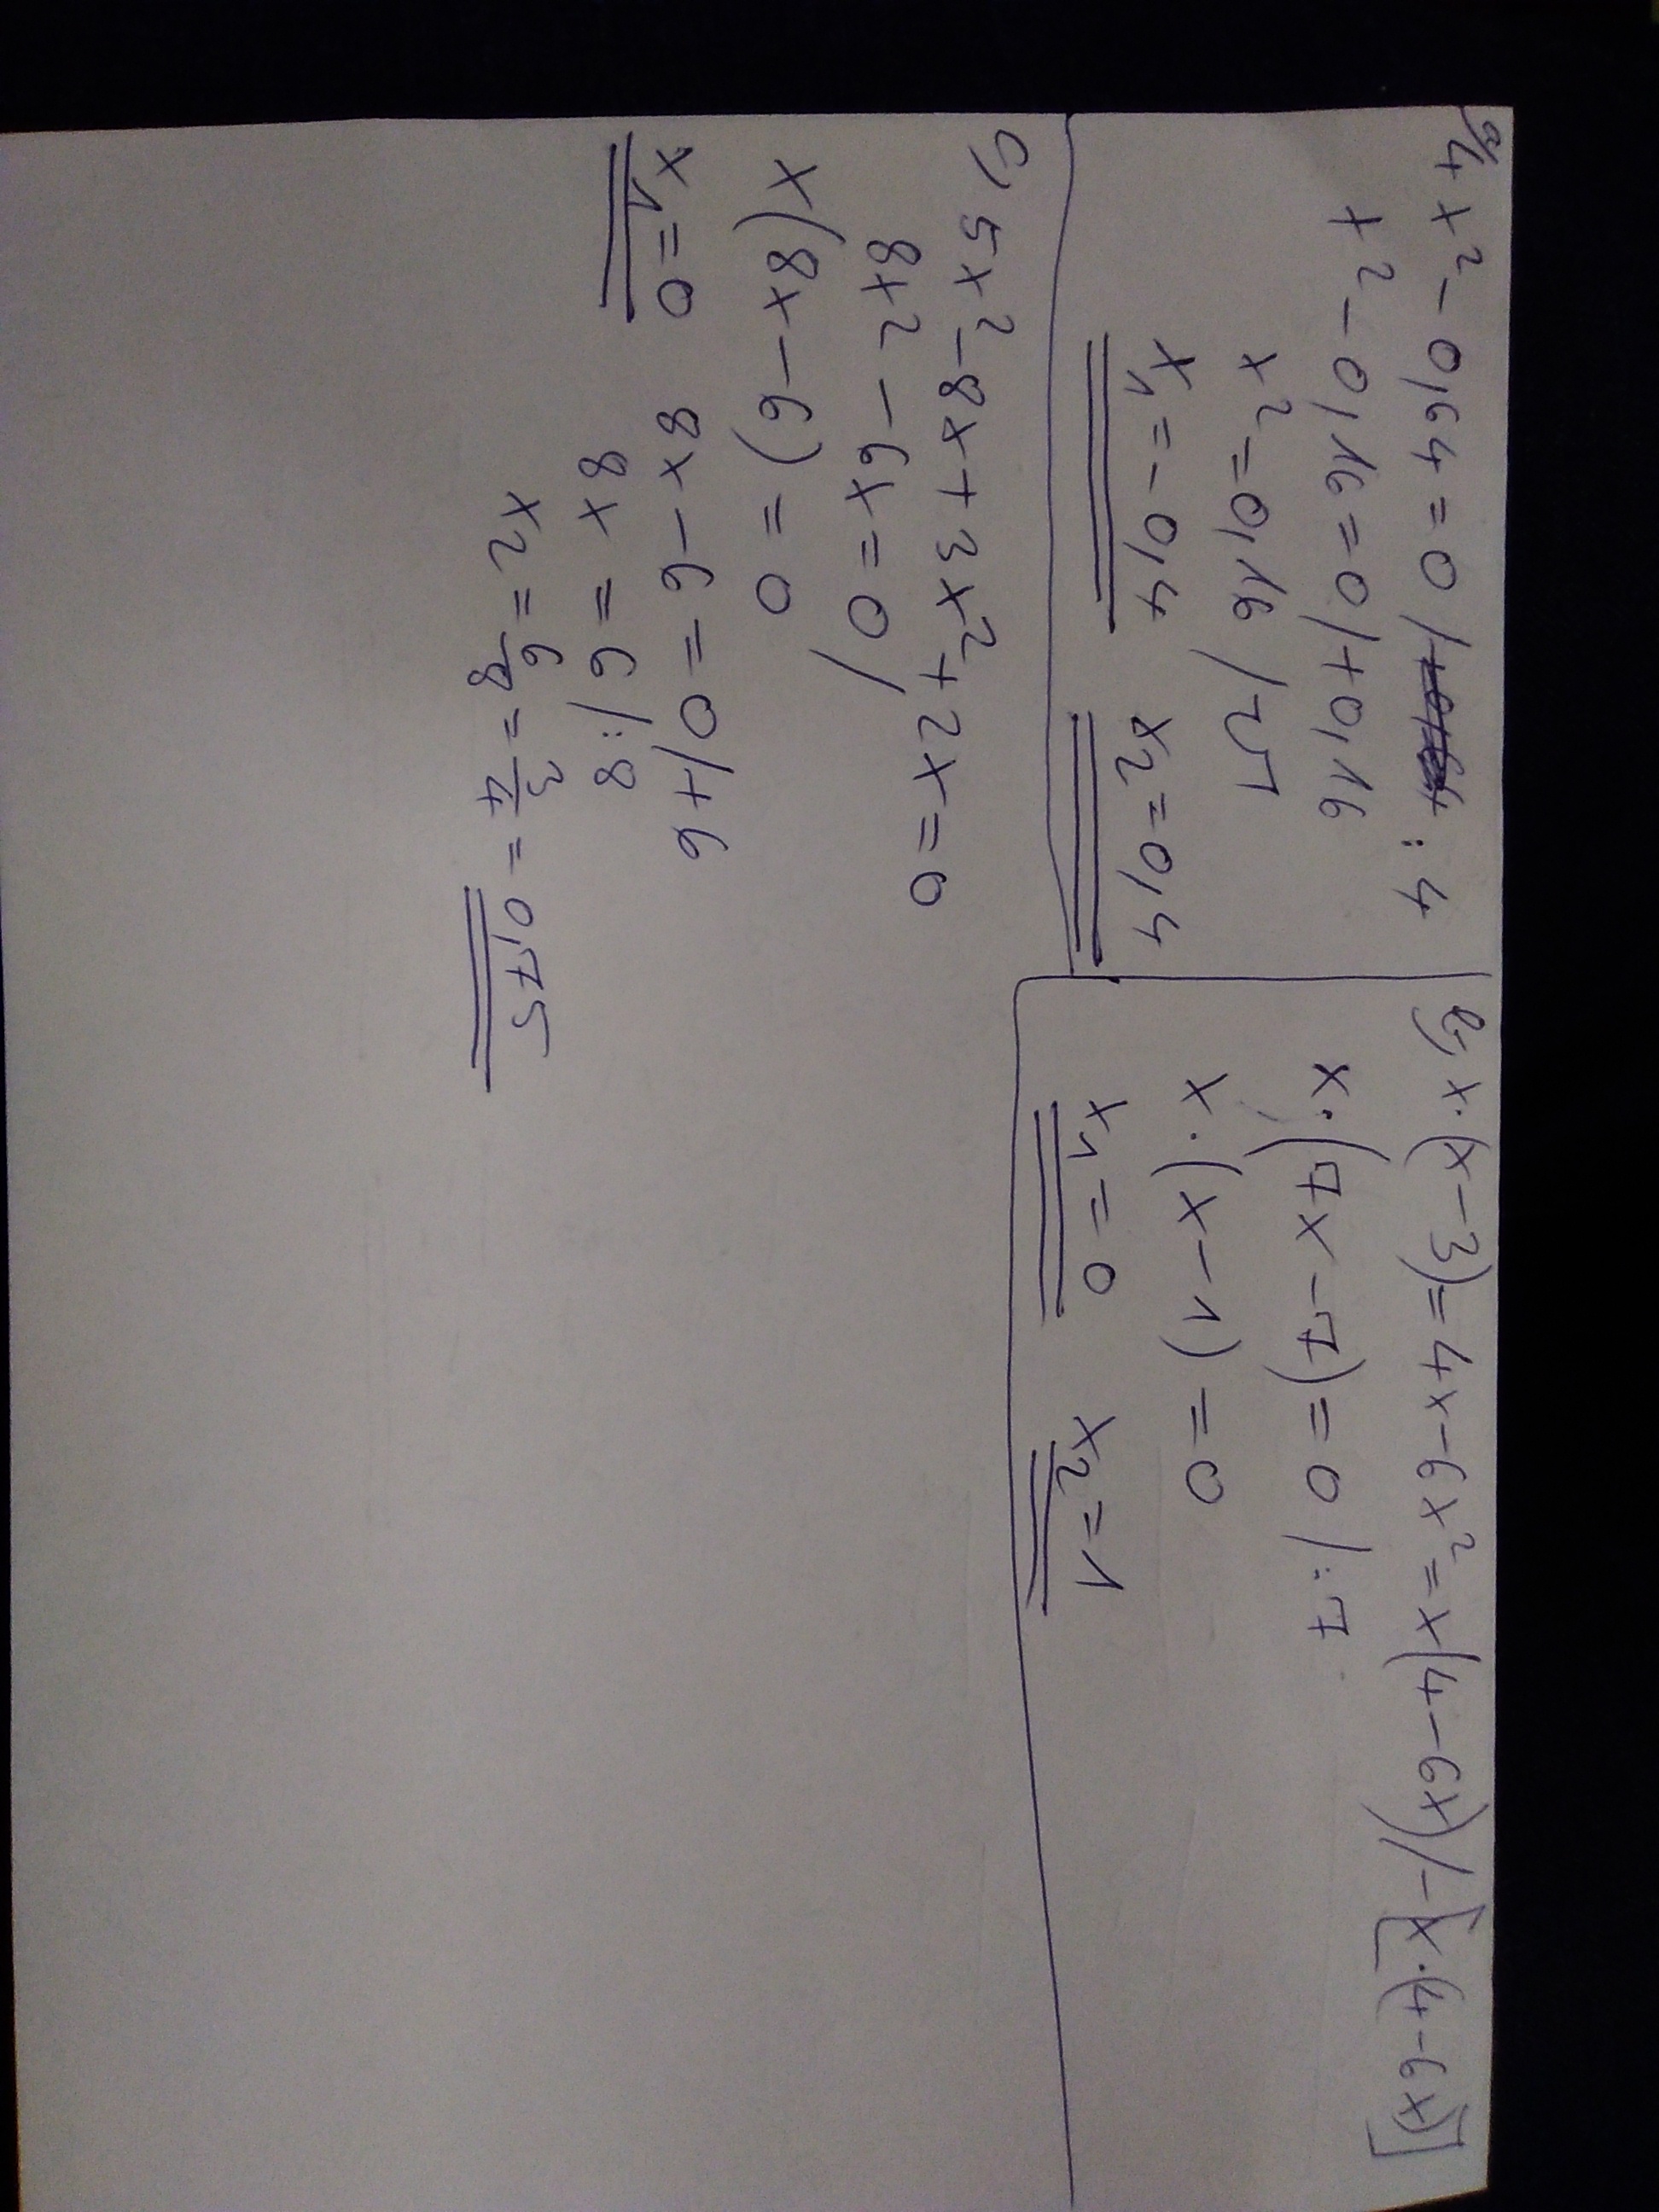 a, 4x² - 0,64 = 0 / : 4
x² - 0,16 = 0 / + 0,16
x² = 0,16 / √
x₁ = - 0,4 x₂ = 0,4
b, x·(x-3) = 4x - 6x² = x(4-6x) / - [x·(4-6x)]
x·(7x-7) = 0 / : 7
x·(x-1) = 0
x₁ = 0 x₂ = 1
c, 5x² - 8x + 3x² + 2x = 0
8x² - 6x = 0 /
x(8x - 6) = 0
x₁ = 0 8x - 6 = 0 / + 6
8x = 6 / : 8
x₂ = 6/8 = 3/4 = 0,75